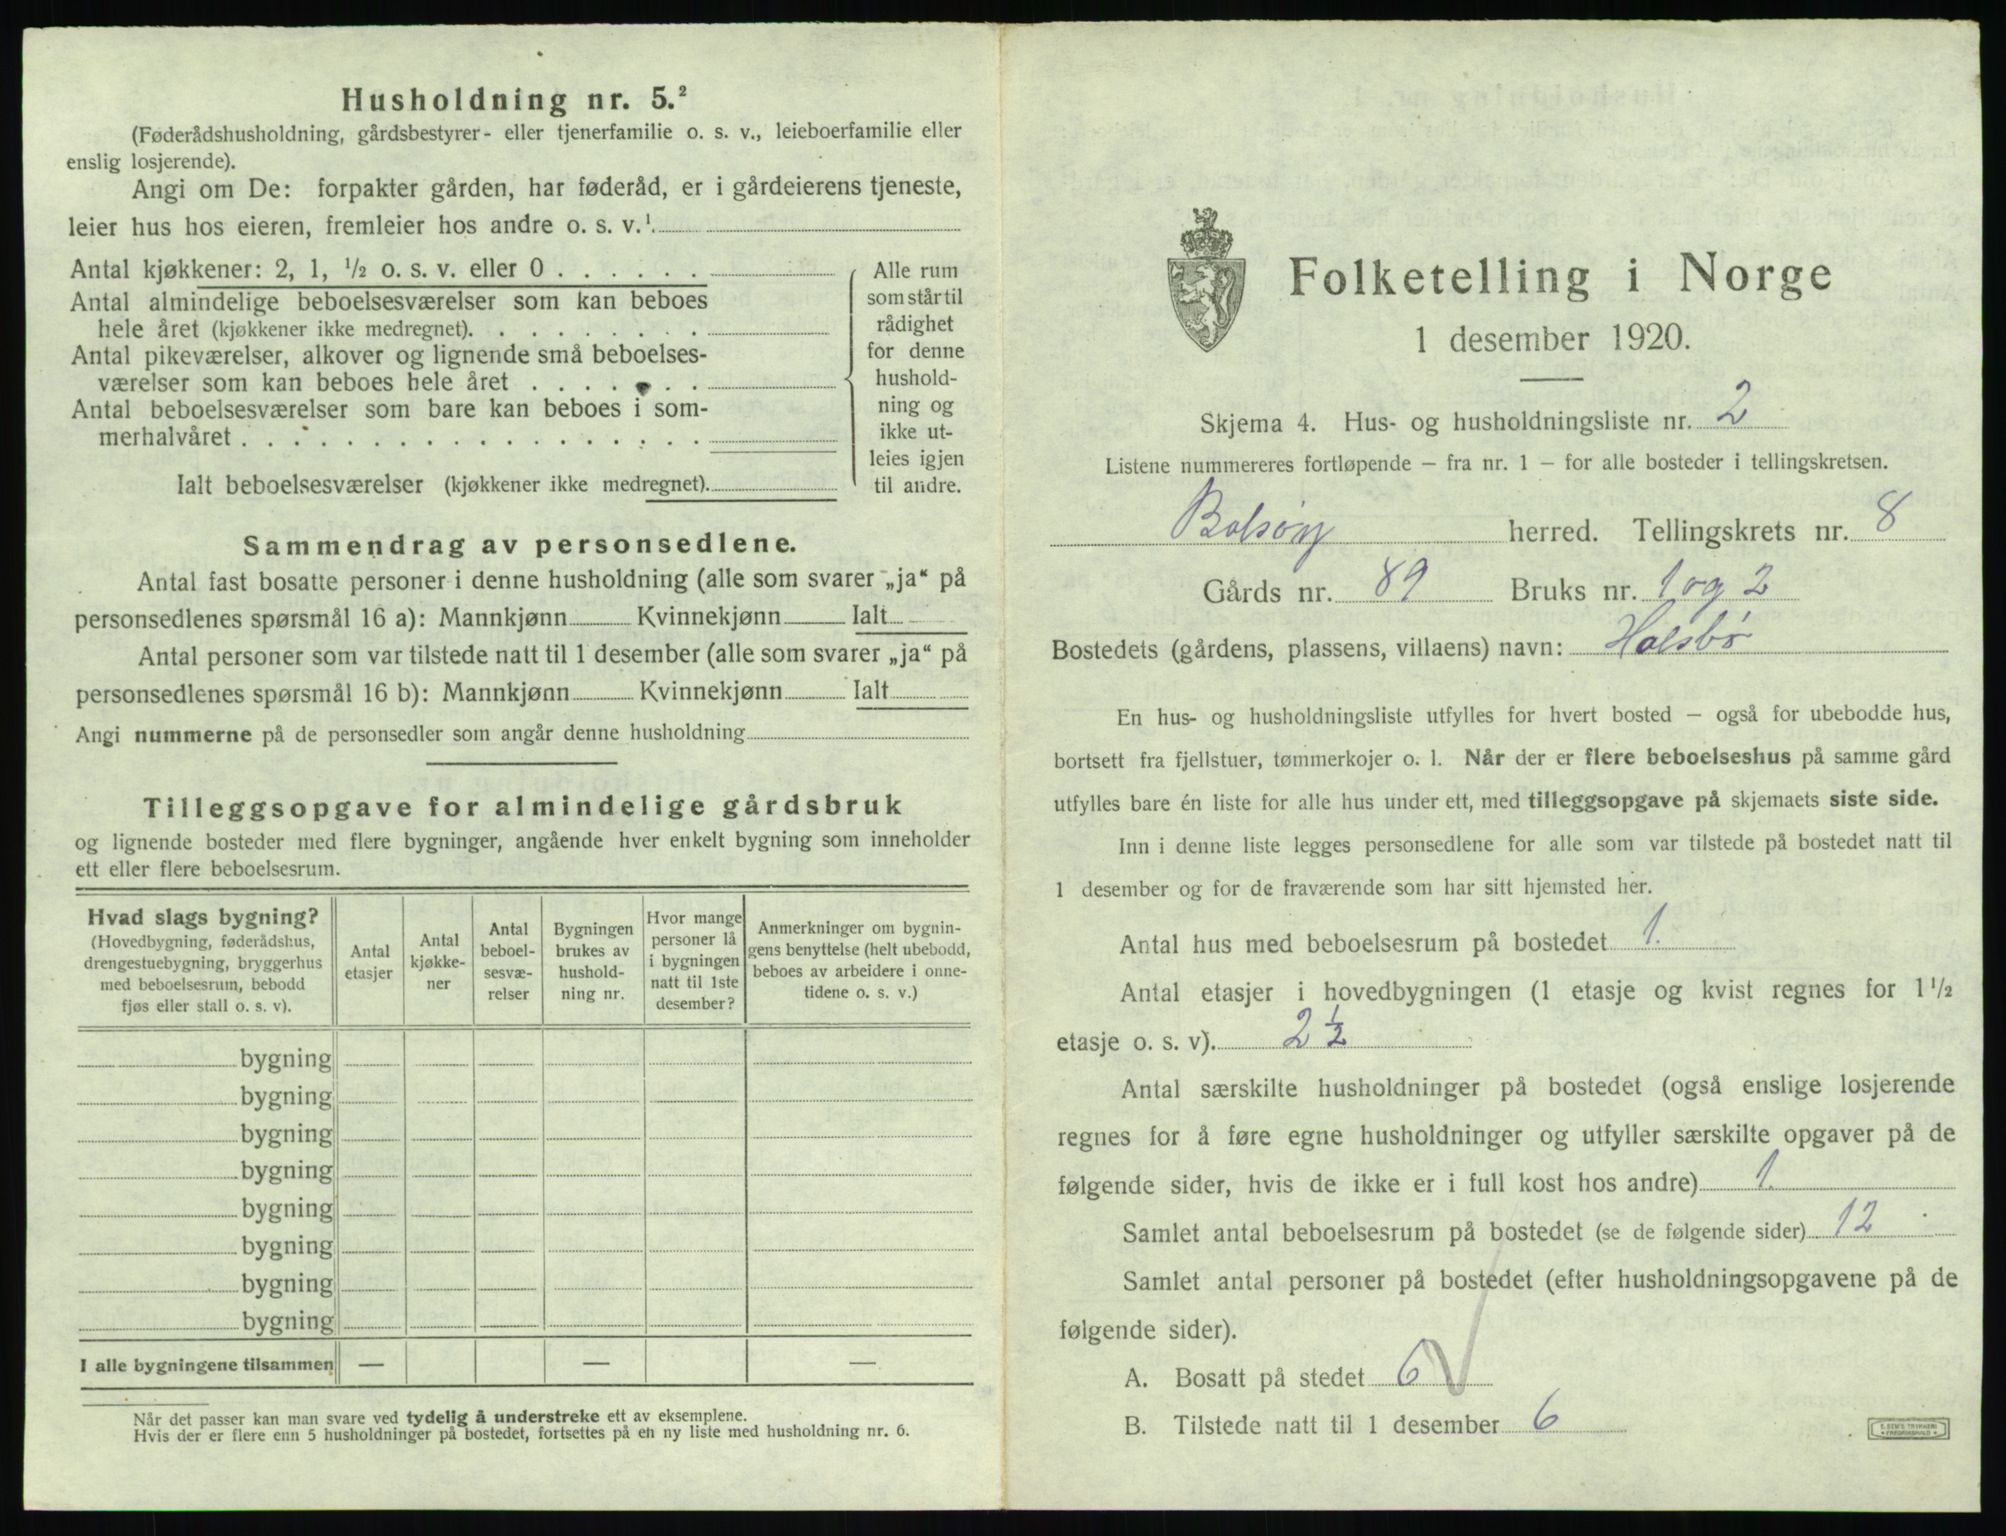 Husholdning nr. 5.²
(Føderådshusholdning, gårdsbestyrer- eller tjenerfamilie o. s. v., leieboerfamilie eller
enslig losjerende).
Angi om De: forpakter gården, har føderåd, er i gårdeierens tjeneste,
leier hus hos eieren, fremleier hos andre o. s. v.¹
Antal kjøkkener: 2, 1, ½ o. s. v. eller 0 . . . . . .
Antal almindelige beboelsesværelser som kan beboes
hele året (kjøkkener ikke medregnet). . . . . . . . .
Antal pikeværelser, alkover og lignende små beboelses-
værelser som kan beboes hele året . . . . . . .
Antal beboelsesværelser som bare kan beboes i som-
merhalvåret . . . . . . . . . . . . . . . . . .
Ialt beboelsesværelser (kjøkkener ikke medregnet).
Alle rum
som står til
rådighet
for denne
hushold-
ning og
ikke ut-
leies igjen
til andre.
Sammendrag av personsedlene.
Antal fast bosatte personer i denne husholdning (alle som svarer „ja“ på
personsedlenes spørsmål 16 a): Mannkjønn Kvinnekjønn Ialt
Antal personer som var tilstede natt til 1 desember (alle som svarer „ja“ på
personsedlenes spørsmål 16 b): Mannkjønn Kvinnekjønn Ialt
Angi nummerne på de personsedler som angår denne husholdning
Tilleggsopgave for almindelige gårdsbruk
og lignende bosteder med flere bygninger, angående hver enkelt bygning som inneholder
ett eller flere beboelsesrum.
Hvad slags bygning?
(Hovedbygning, føderådshus,
drengestuebygning, bryggerhus
med beboelsesrum, bebodd
fjøs eller stall o. s. v).
Antal
etasjer
Antal
kjøkke-
ner
Antal
beboel-
sesvæ-
relser
Bygningen
brukes av
hushold-
ning nr.
Hvor mange
personer lå
i bygningen
natt til 1ste
desember?
Anmerkninger om bygnin-
gens benyttelse (helt ubebodd,
beboes av arbeidere i onne-
tidene o. s. v.)
bygning
bygning
bygning
bygning
bygning
bygning
bygning
bygning
I alle bygningene tilsammen — — —
Når det passer kan man svare ved tydelig å understreke ett av eksemplene.
Hvis der er flere enn 5 husholdninger på bostedet, fortsettes på en ny liste med husholdning nr. 6.
Folketelling i Norge
1 desember 1920.
Skjema 4. Hus- og husholdningsliste nr. 2
Listene nummereres fortløpende – fra nr. 1 – for alle bosteder i tellingskretsen.
Bolsøy herred. Tellingskrets nr. 8
Gårds nr. 89 Bruks nr. 1 og 2
Bostedets (gårdens, plassens, villaens) navn: Holsbø
En hus- og husholdningsliste utfylles for hvert bosted – også for ubebodde hus,
bortsett fra fjellstuer, tømmerkojer o. l. Når der er flere beboelseshus på samme gård
utfylles bare én liste for alle hus under ett, med tilleggsopgave på skjemaets siste side.
Inn i denne liste legges personsedlene for alle som var tilstede på bostedet natt til
1 desember og for de fraværende som har sitt hjemsted her.
Antal hus med beboelsesrum på bostedet 1.
Antal etasjer i hovedbygningen (1 etasje og kvist regnes for 1½
etasje o. s. v). 2½
Antal særskilte husholdninger på bostedet (også enslige losjerende
regnes for å føre egne husholdninger og utfyller særskilte opgaver på de
følgende sider, hvis de ikke er i full kost hos andre) 1.
Samlet antal beboelsesrum på bostedet (se de følgende sider) 12
Samlet antal personer på bostedet (efter husholdningsopgavene på de
følgende sider).
A. Bosatt på stedet 6
B. Tilstede natt til 1 desember 6